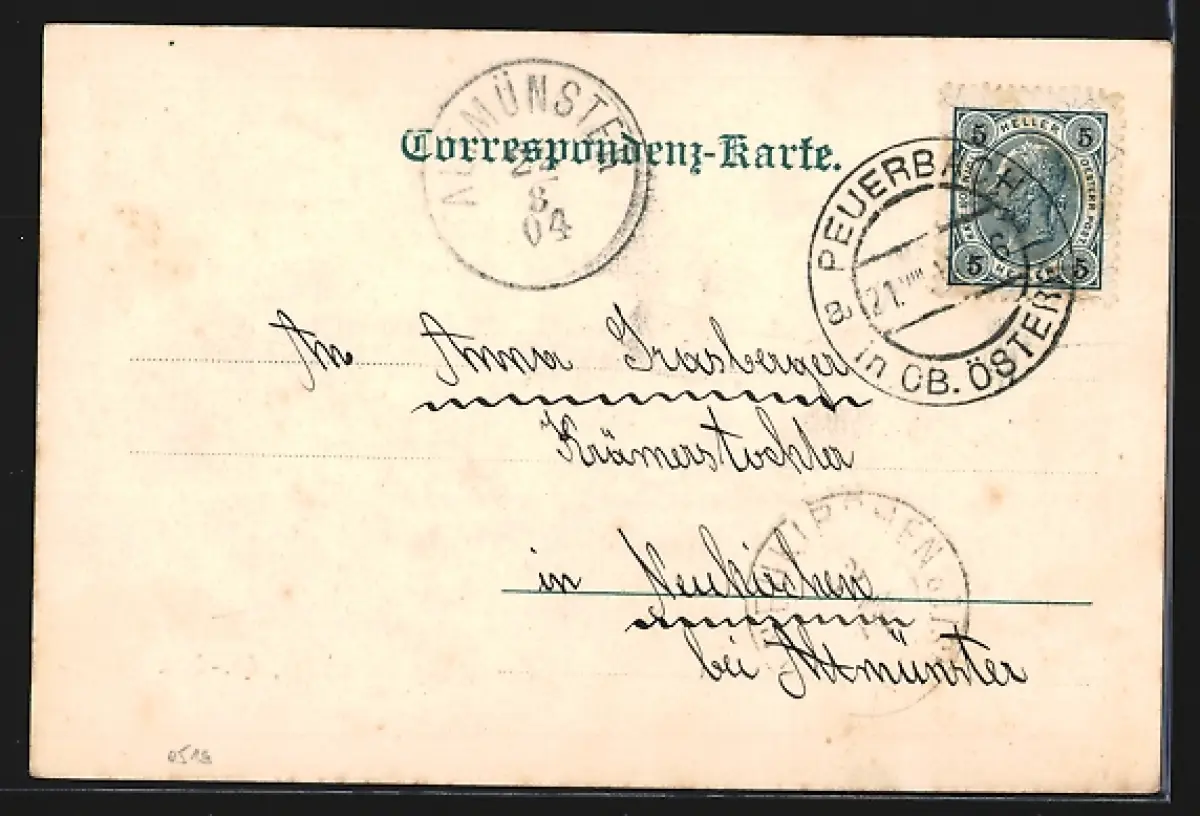 ALTMÜNSTER
22
8
04
Correspondenz-Karte.
5 HELLER 5
5 5
PEUERBACH
21. VIII
a
in OB. ÖSTERR
An Anna Grasberger
Krämerstochter
NEUKIRCHEN
in Neukirchen
bei Altmünster